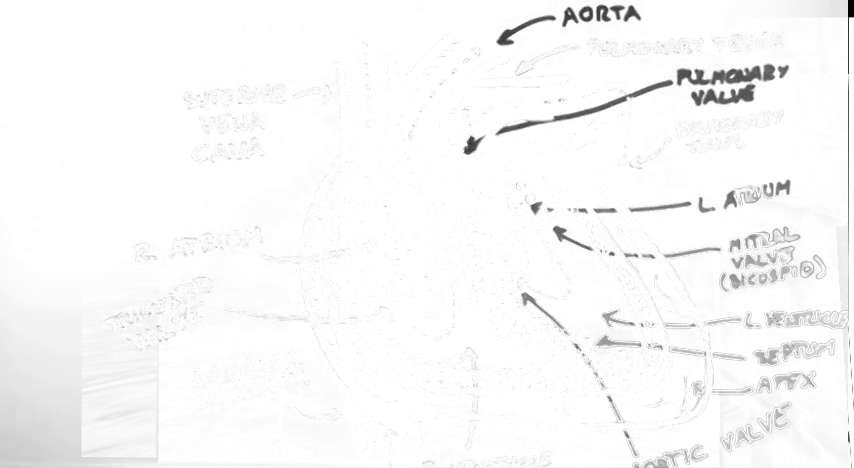 AORTA
PULMONARY TRUNK
PULMONARY
VALVE
SUPERIOR
VENA
CAVA
PULMONARY
L. ATRIUM
R. ATRIUM
MITRAL
VALVE
(BICUSPID)
TRICUSPID
VALVE
L. VENTRICLE
SEPTUM
APEX
AORTIC VALVE
R. VENTRICLE